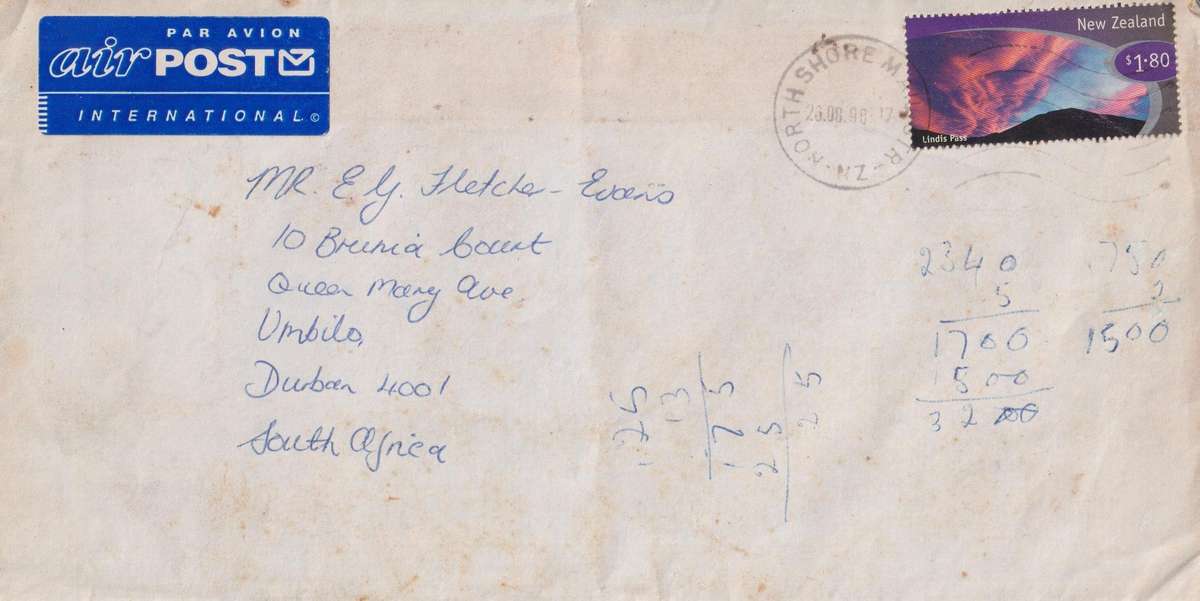 PAR AVION
air POST
INTERNATIONAL ©
New Zealand
$1.80
Lindis Pass
NORTH SHORE M
NZ
MR. E G. Fletcher-Evans
10 Brunia Court
Queen Mary Ave.
Umbilo,
Durban 4001
South Africa
2340
5
1700
1500
32
750
2
1500
125
13
175
25
25